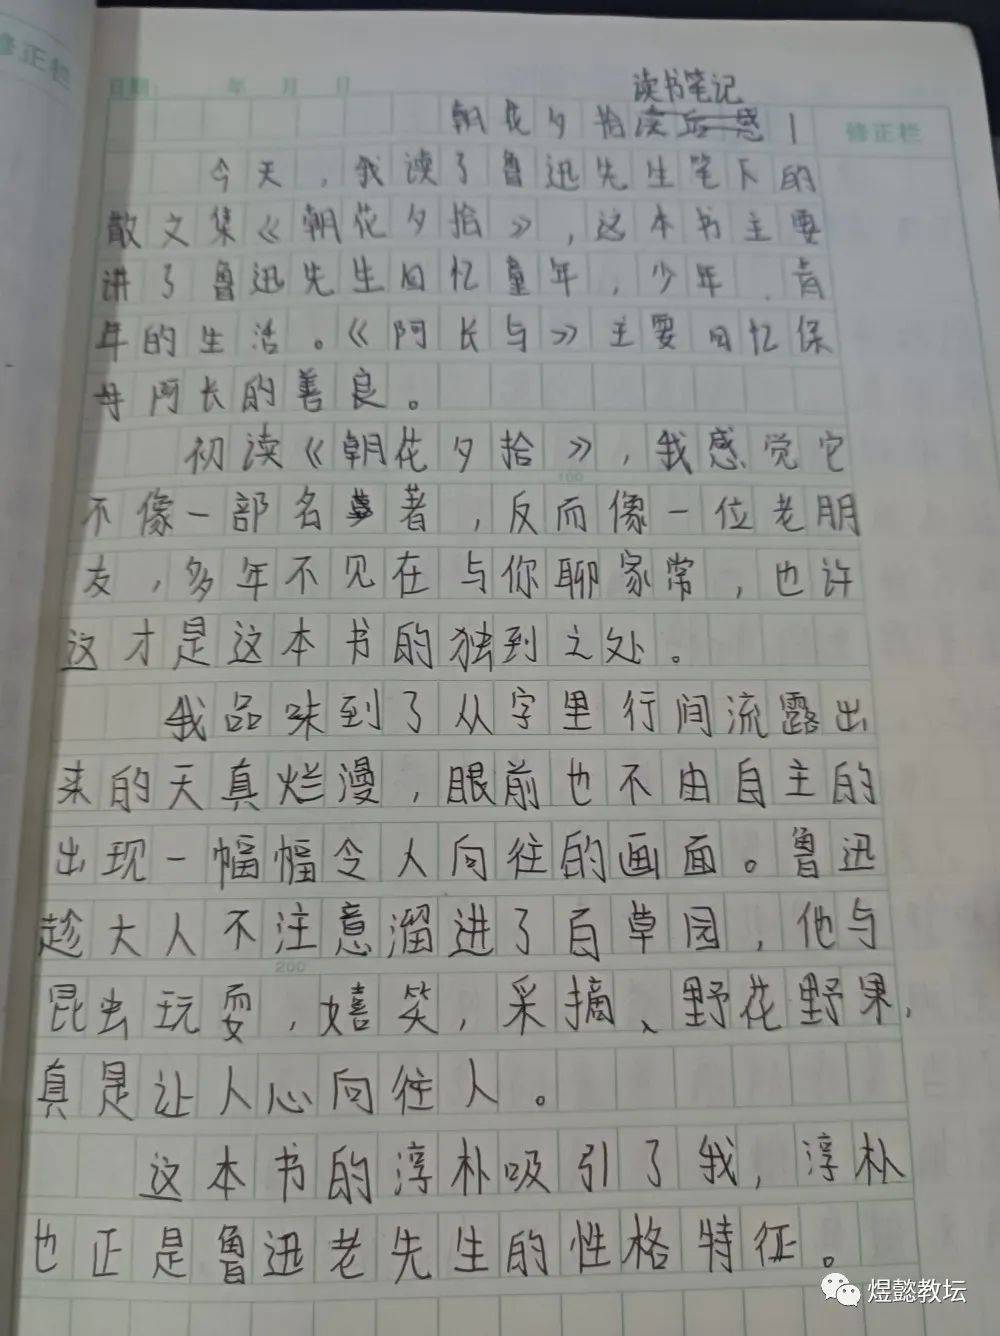 修正栏
日期： 年 月 日
读书笔记
朝花夕拾读后感 1
修正栏
今天，我读了鲁迅先生笔下的
散文集《朝花夕拾》，这本书主要
讲了鲁迅先生回忆童年，少年、青
年的生活。《阿长与》主要回忆保
母阿长的善良。
初读《朝花夕拾》，我感觉它
不像一部名著，反而像一位老朋
100
友，多年不见在与你聊家常，也许
这才是这本书的独到之处。
我品味到了从字里行间流露出
来的天真烂漫，眼前也不由自主的
出现一幅幅令人向往的画面。鲁迅
趁大人不注意溜进了百草园，他与
200
昆虫玩耍，嬉笑，采摘、野花野果，
真是让人心向往人。
这本书的淳朴吸引了我，淳朴
也正是鲁迅老先生的性格特征。
煜懿教坛